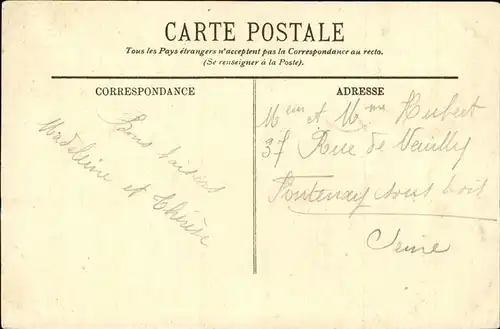 CARTE POSTALE
Tous les Pays étrangers n'acceptent pas la Correspondance au recto.
(Se renseigner à la Poste).
CORRESPONDANCE
Bons baisers
Madeleine et Thérèse
ADRESSE
et Mme Hubert
37 Rue de Neuilly
Fontenay sous bois
Seine